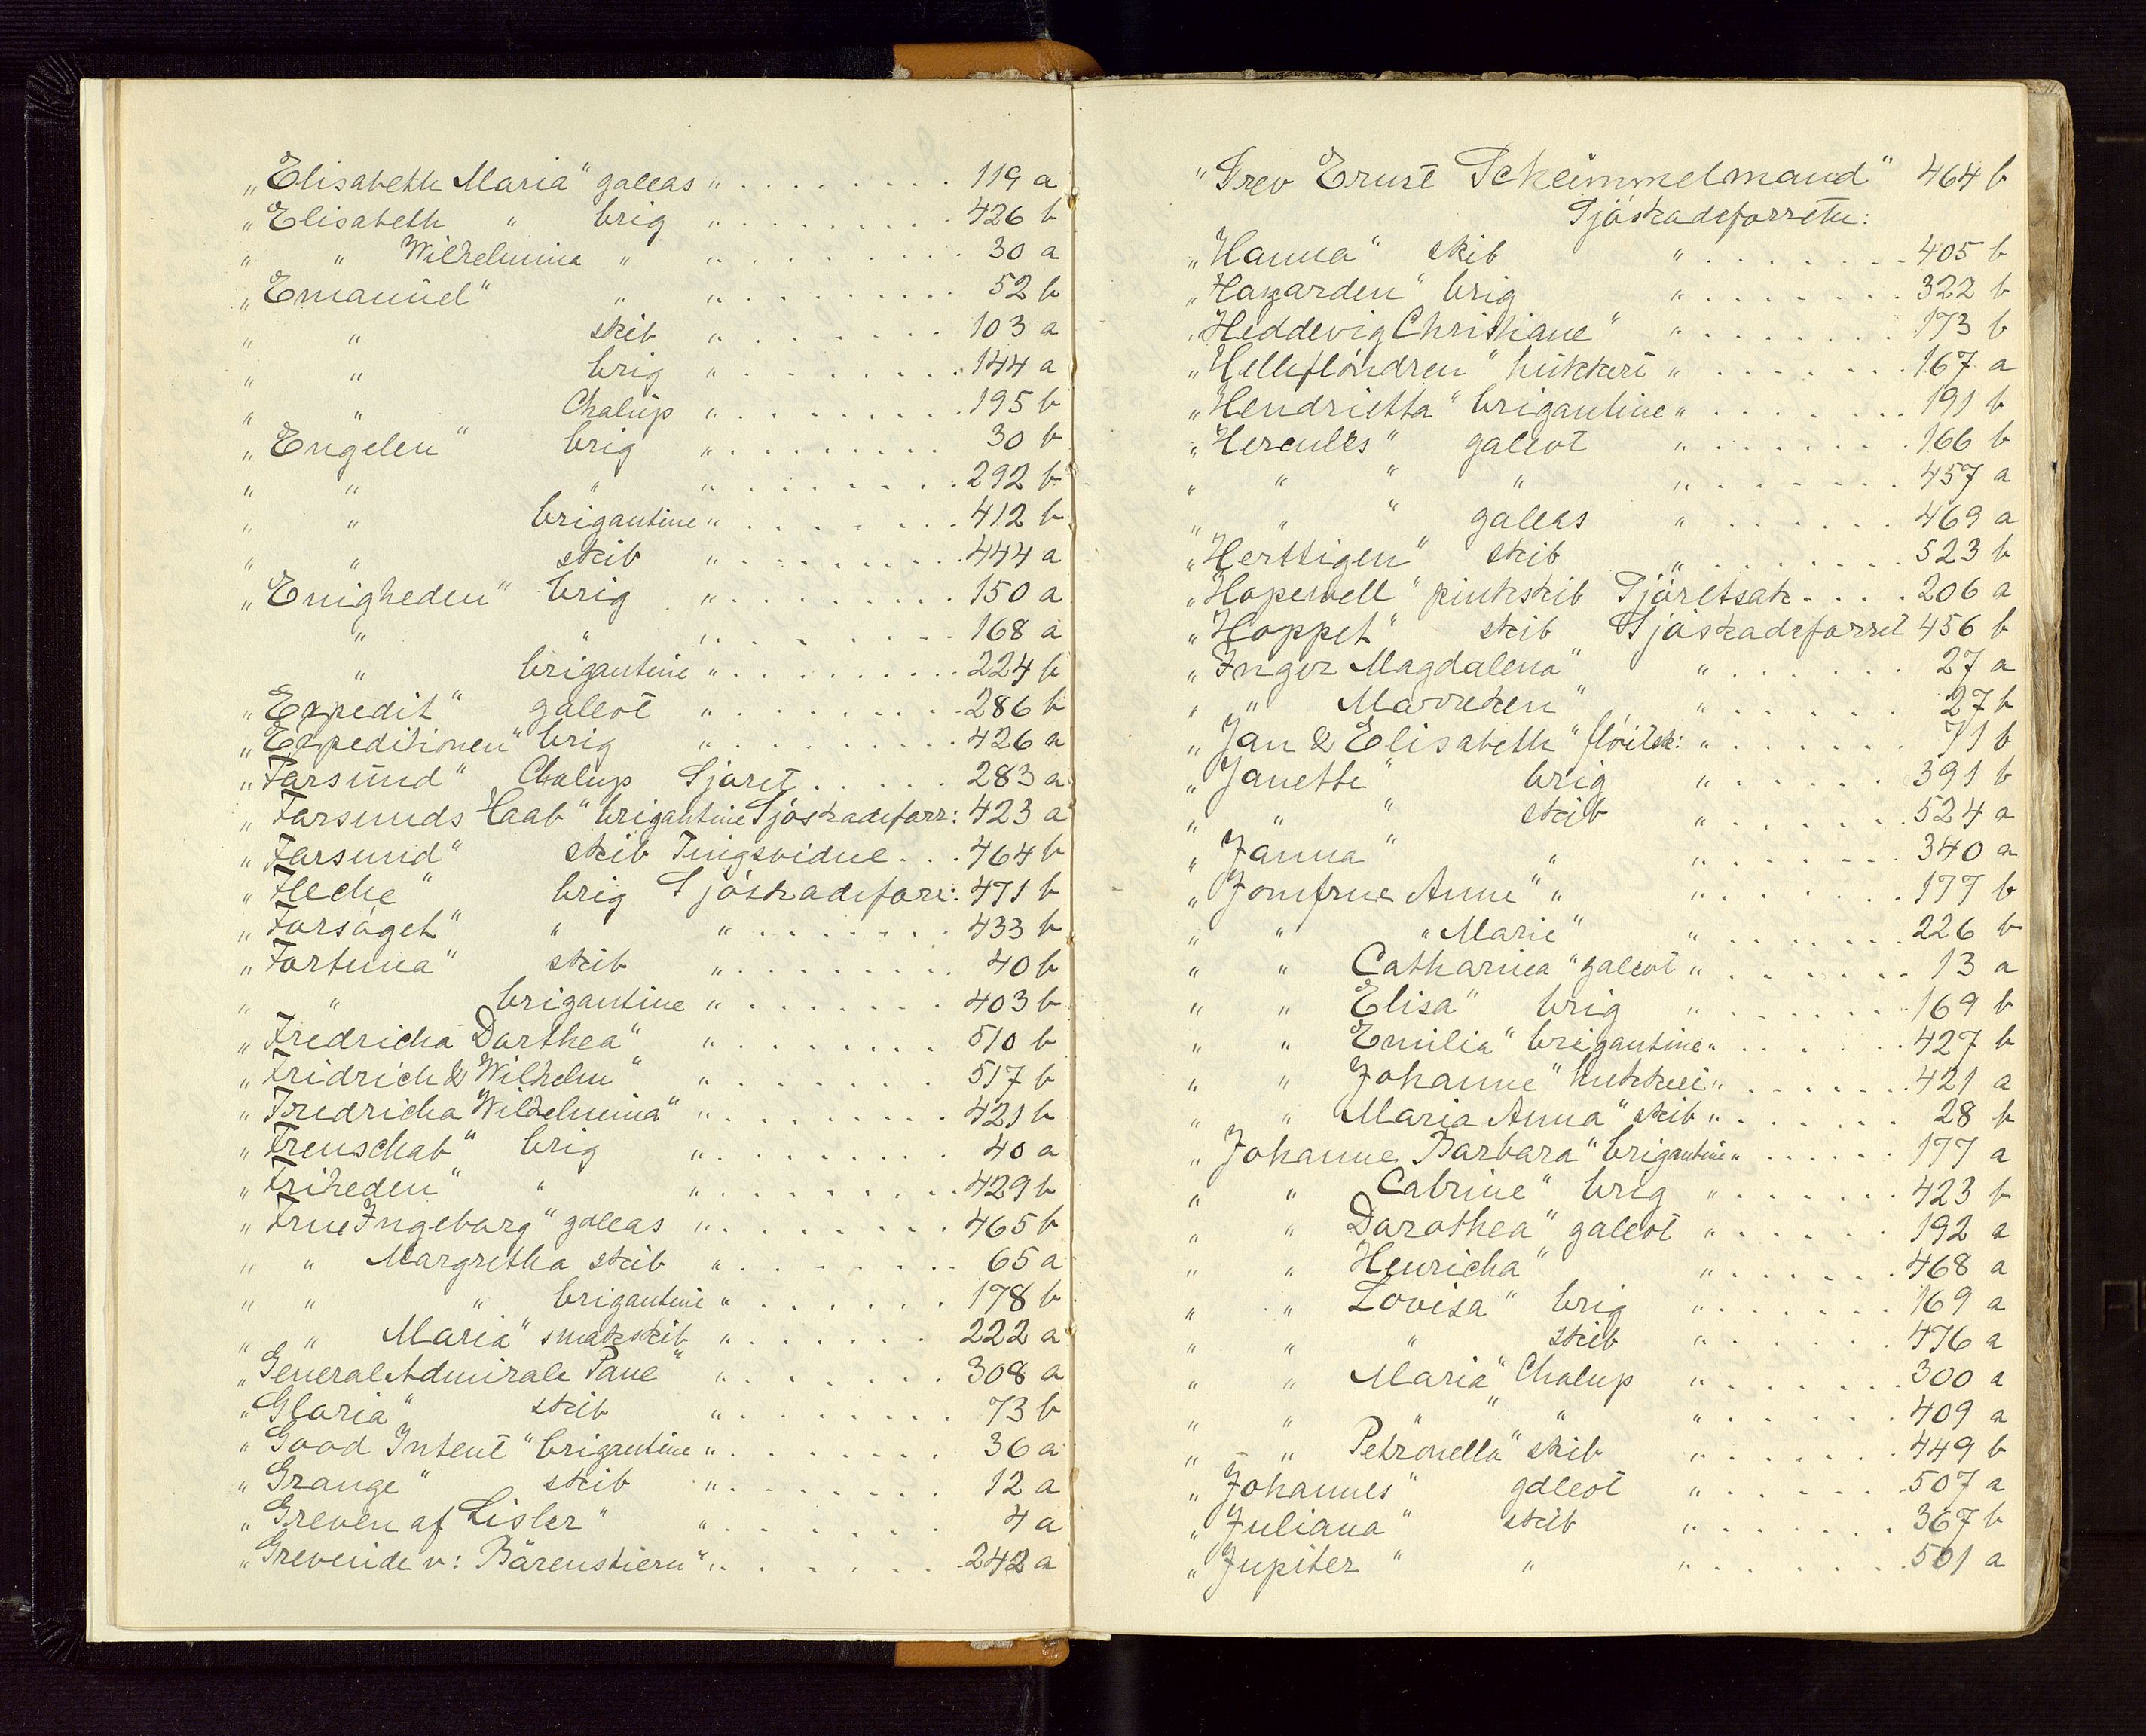 „Elisabeth Maria“ galeas „ . . . . . . . . 119 a
„Elisabeth „ brig „ . . . . . . . . 426 b
„ „ Wilhelmina „ „ . . . . . . . . 30 a
„Emanuel“ „ „ . . . . . . . . 52 b
„ „ skib „ . . . . . . . 103 a
„ „ brig „ . . . . . . . . 144 a
„ „ Chalup „ . . . . . . . . 195 b
„Engelen“ brig „ . . . . . . . . 30 b
„ „ „ „ . . . . . . . . 292 b
„ „ brigantine „ . . . . . . . 412 b
„ „ skib „ . . . . . . . . 444 a
„Enigheden“ brig „ . . . . . . . . 150 a
„ „ „ . . . . . . . . 168 a
„ brigantine „ . . . . . . . . 224 b
„Expedit“ galeot „ . . . . . . . . 286 b
„Expeditionen“ brig „ . . . . . . . . 426 a
„Farsund“ Chalup Sjøret . . . . . 283 a
„Farsunds Haab“ brigantine Sjøskadeforr: 423 a
„Farsund“ skib Tingsvidne . . . 464 b
„Heche“ brig Sjøskadeforr: 471 b
„Forsøget“ „ „ . . . . . . . 433 b
„Fortuna“ skib „ . . . . . . . . 40 b
„ „ brigantine „ . . . . . . . 403 b
„Fredricha Dorthea“ „ . . . . . . . 510 b
„Fridrich & Wilhelm“ „ . . . . . . . 517 b
„Fredricha Wilhelmina“ „ . . . . . . . . 421 b
„Frenschab“ brig „ . . . . . . . . 40 a
„Friheden“ „ „ . . . . . . . . 429 b
„Frue Ingeborg“ galeas „ . . . . . . . . 465 b
„ „ Margretha skib „ . . . . . . . 65 a
„ „ „ brigantine „ . . . . . . 178 b
„ „ Maria“ smakskib „ . . . . . . . 222 a
„General Admirale Pane“ „ . . . . . . . 308 a
„Gloria“ skib „ . . . . . . . . 73 b
„Good Intent“ brigantine „ . . . . . . . 36 a
„Grange“ skib „ . . . . . . . 12 a
„Greven af Lisler“ „ . . . . . . . 4 a
„Grevende v: Bärenstiern“ „ . . . . . . . 242 a
„Grev Ernst Scheimmelmand“ 464 b
Sjøskadeforretn:
„Hanna“ skib „ . . . . . . . 405 b
„Hazarden“ brig „ . . . . . . . 322 b
„Heddevig Christiane“ „ . . . . . . . 173 b
„Helleflóndren“ hukkert „ . . . . . . . 167 a
„Hendrietta“ brigantine „ . . . . . . . 191 b
„Hercules“ galeot „ . . . . . . . 166 b
„ „ „ „ „ . . . . . . . 457 a
„ „ „ galeas „ . . . . . . 469 a
„Herttigen“ skib „ . . . . . . . . 523 b
„Hopewell“ pinkskib Sjøretsak . . . . 206 a
„Hoppet“ skib Sjøskadeforret 456 b
„Inger Magdalena“ „ . . . . . . 27 a
„ „ Marreken“ „ . . . . . . 27 b
„Jan & Elisabeth“ flöitsk: „ . . . . . . . 71 b
„Janette“ brig „ . . . . . . 391 b
„ „ „ skib „ . . . . . . 524 a
„Janna“ „ „ . . . . . . . 340 a
„Jomfrue Anne“ „ „ . . . . . . 177 b
„ „ „Marie“ „ . . . . . . . 226 b
„ „ Catharina“ galeot „ . . . . . . . 13 a
„ „ Elisa“ brig „ . . . . . . . 169 b
„ „ Emilia“ brigantine „ . . . . . . 427 b
„ „ Johanne“ hukkert „ . . . . . . 421 a
„ „ Maria Anna“ skib „ . . . . . . . 28 b
„Johanne Barbara“ brigantine „ . . . . . . 177 a
„ „ Catrine“ brig „ . . . . . . 423 b
„ „ Dorothea“ galeot „ . . . . . . 192 a
„ „ Henricha“ „ . . . . . . 468 a
„ „ Lovisa“ brig „ . . . . . . . 169 a
„ „ „ skib „ . . . . . . 476 a
„ „ Maria“ Chalup „ . . . . . . . 300 a
„ „ „ „ „ „ . . . . . . 409 a
„ „ Petronella“ skib „ . . . . . . 449 b
„Johannes“ galeot „ . . . . . . 507 a
„Juliana“ skib „ . . . . . . . 367 b
„Jupiter“ „ „ . . . . . . . 501 a